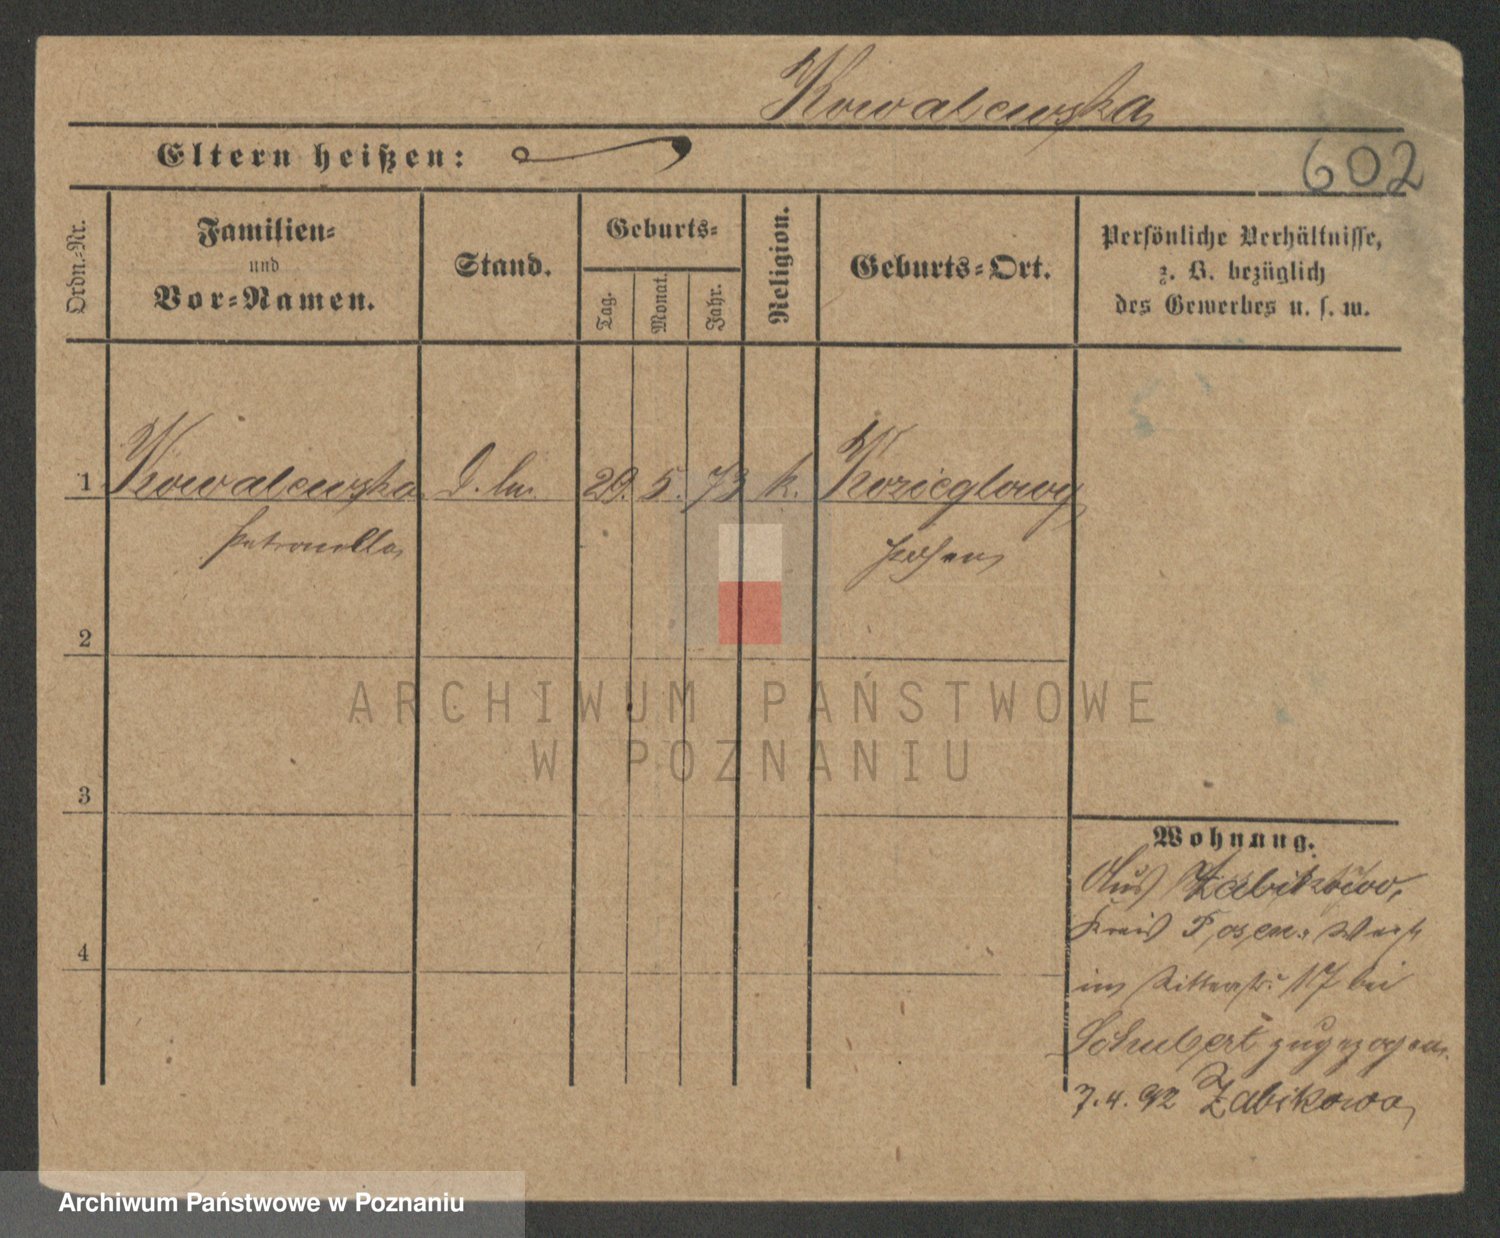 Kowalewska
Eltern heißen:
602
Ordn.-Nr.
Familien-
und
Vor-Namen.
Stand.
Geburts-
Tag.
Monat.
Jahr.
Religion.
Geburts-Ort.
Persönliche Verhältnisse,
z. B. bezüglich
des Gewerbes u. s. w.
1 Kowalewska 29. 5. 73 k. Kozieglowy
Petronella Posen
2
3
4
Wohnung.
Aus Zabikowo,
Kreis Posen-West
in Ritterstr. 17 bei
Schubert zugezogen.
7.4.92 Zabikowo
ARCHIWUM PAŃSTWOWE
W POZNANIU
Archiwum Państwowe w Poznaniu